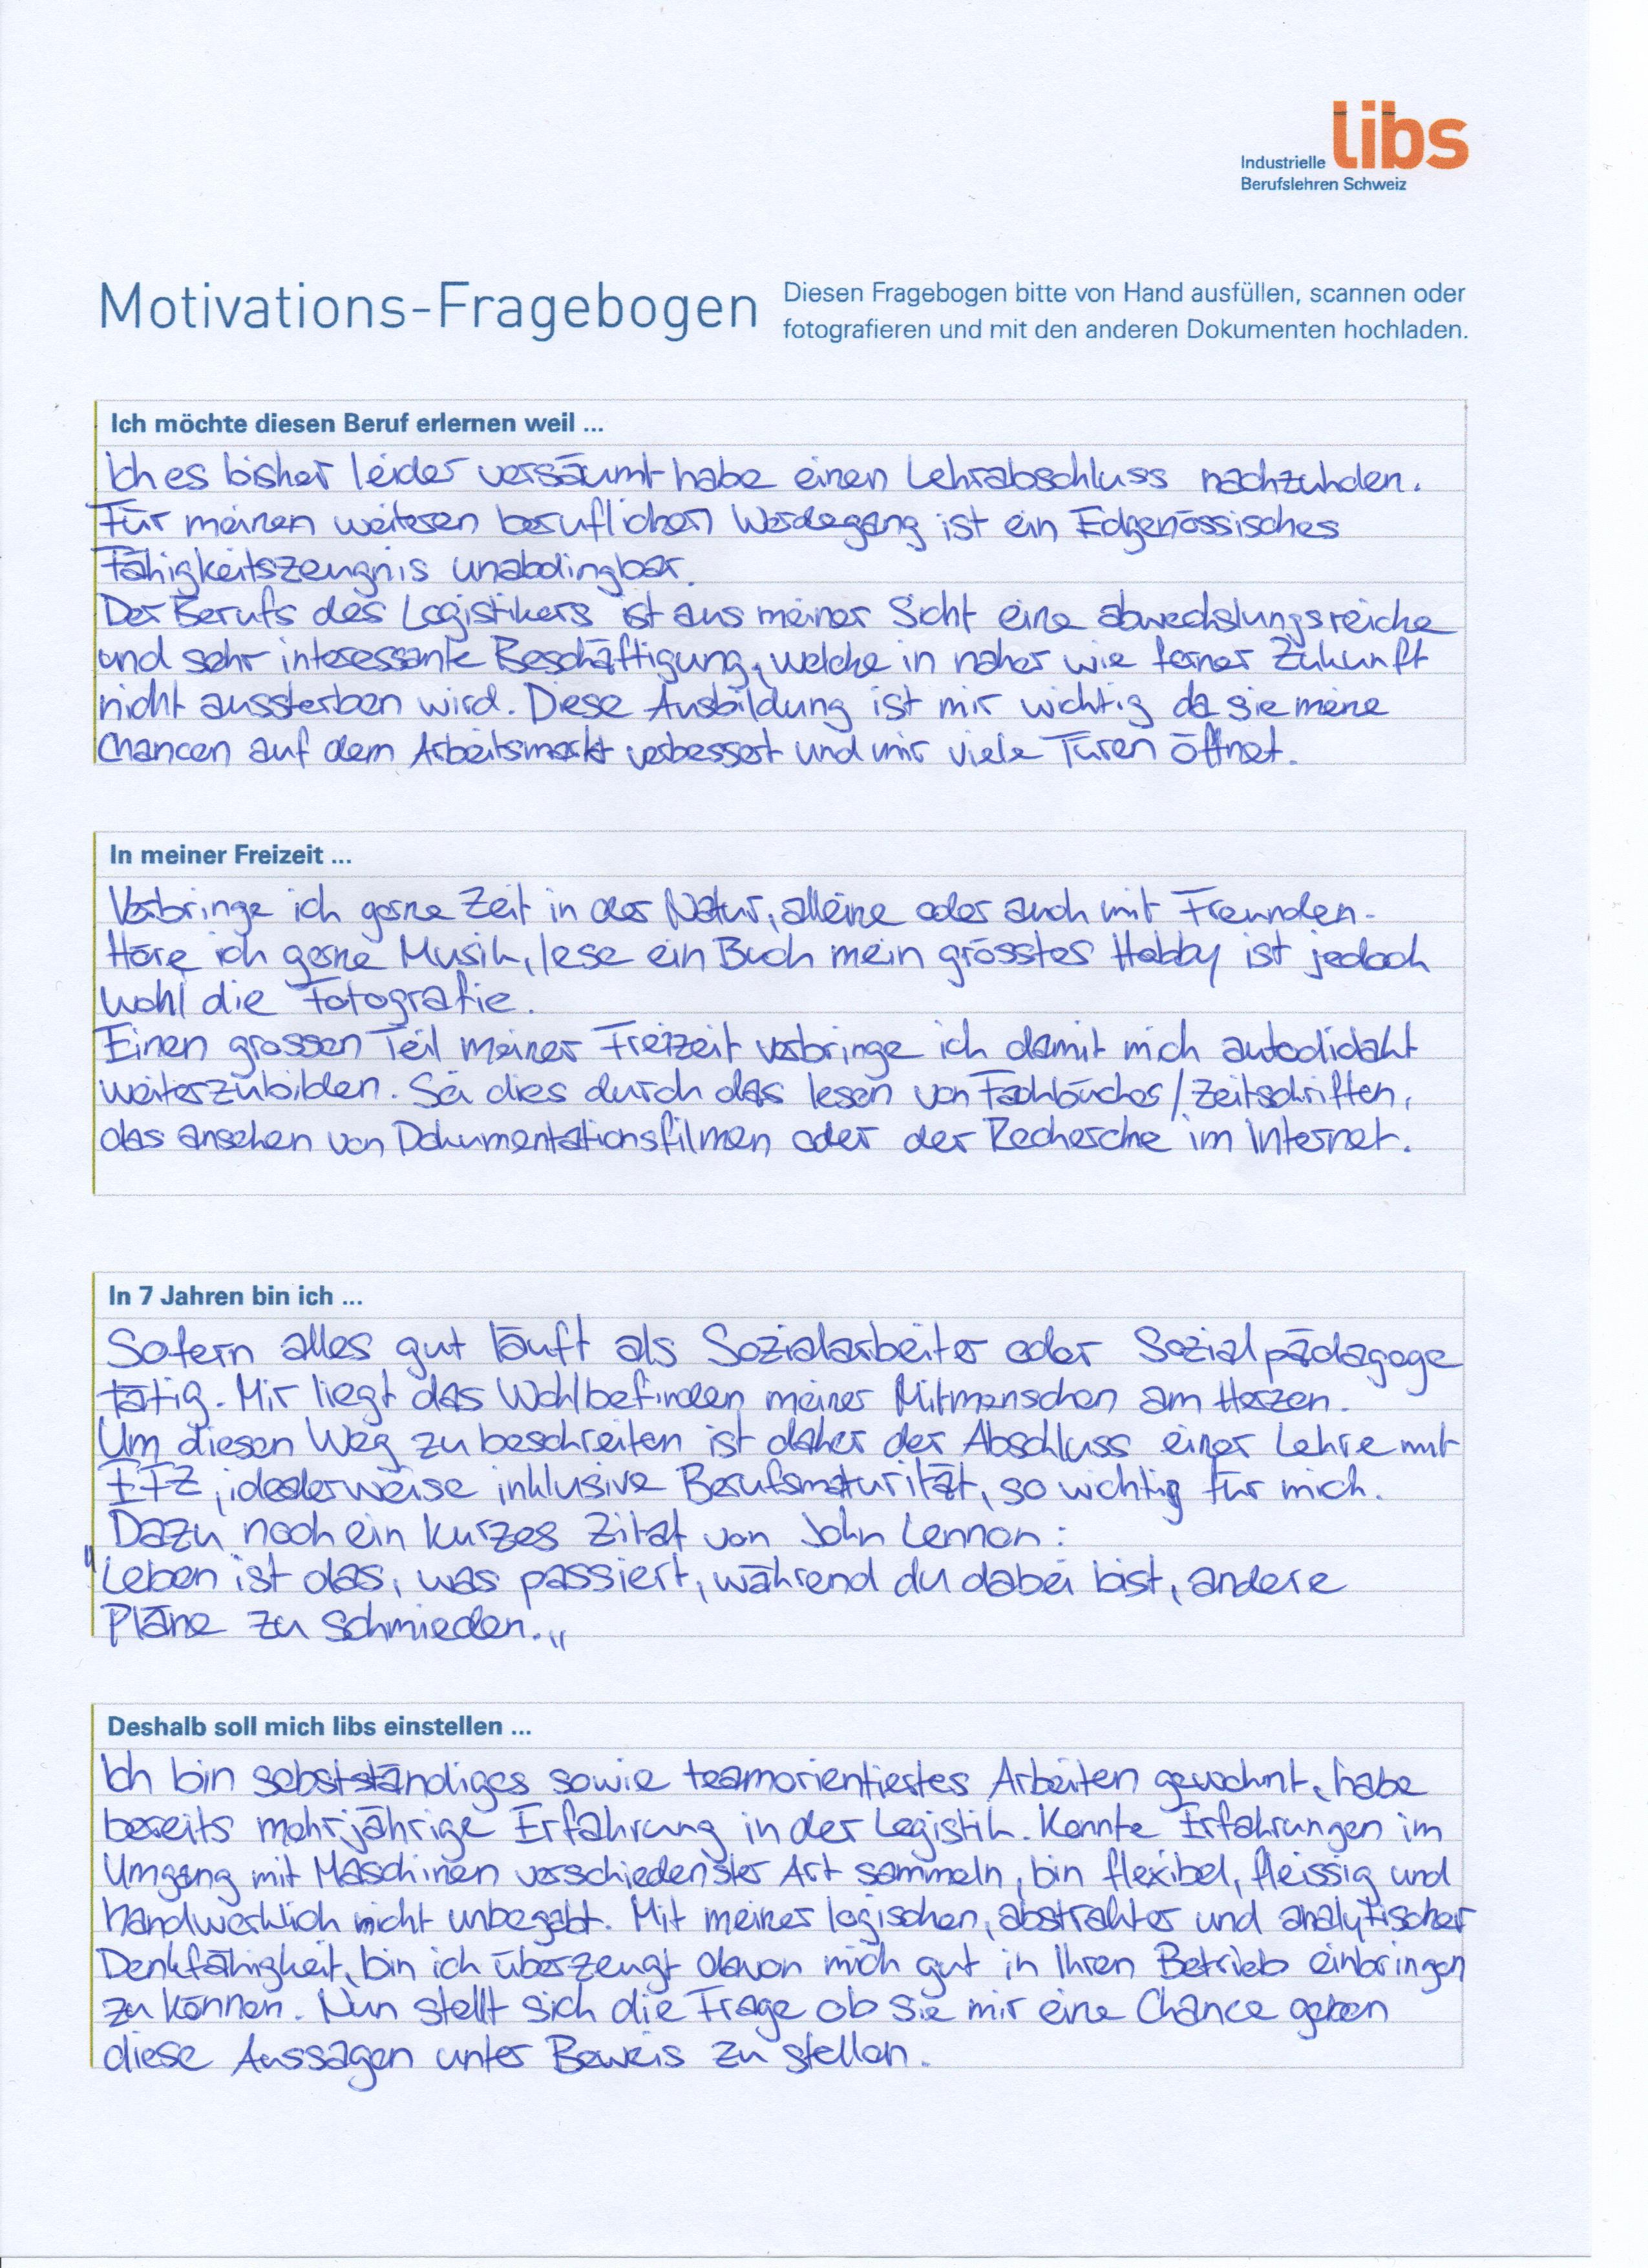 libs
Industrielle
Berufslehren Schweiz
Motivations-Fragebogen
Diesen Fragebogen bitte von Hand ausfüllen, scannen oder
fotografieren und mit den anderen Dokumenten hochladen.
Ich möchte diesen Beruf erlernen weil ...
Ich es bisher leider versäumt habe einen Lehrabschluss nachzuholen.
Für meinen weiteren beruflichen Werdegang ist ein Edgenössisches
Fähigkeitszeugnis unabdingbar.
Der Berufs des Logistikers ist aus meiner Sicht eine abwechslungsreiche
und sehr interessante Beschäftigung, welche in naher wie ferner Zukunft
nicht aussterben wird. Diese Ausbildung ist mir wichtig da sie meine
Chancen auf dem Arbeitsmarkt verbessert und mir viele Türen öffnet.
In meiner Freizeit ...
Verbringe ich gerne Zeit in der Natur, alleine oder auch mit Freunden.
Höre ich gerne Musik, lese ein Buch mein grösstes Hobby ist jedoch
wohl die Fotografie.
Einen grossen Teil meiner Freizeit verbringe ich damit mich autodidakt
weiterzubilden. Sei dies durch das lesen von Fachbücher/Zeitschriften,
das ansehen von Dokumentationsfilmen oder der Recherche im Internet.
In 7 Jahren bin ich ...
Sofern alles gut läuft als Sozialarbeiter oder Sozialpädagoge
tätig. Mir liegt das Wohlbefinden meiner Mitmenschen am Herzen.
Um diesen Weg zu beschreiten ist daher der Abschluss einer Lehre mit
EFZ, idealerweise inklusive Berufsmaturität, so wichtig für mich.
Dazu noch ein kurzes Zitat von John Lennon:
"Leben ist das, was passiert, während du dabei bist, andere
Pläne zu schmieden.„
Deshalb soll mich libs einstellen ...
Ich bin sebstständiges sowie teamorientiertes Arbeiten gewohnt, habe
bereits mehrjährige Erfahrung in der Logistik. Konnte Erfahrungen im
Umgang mit Maschinen verschiedenster Art sammeln, bin flexibel, fleissig und
handwerklich nicht unbegabt. Mit meiner logischen, abstrakter und analytischer
Denkfähigkeit, bin ich überzeugt davon mich gut in Ihren Betrieb einbringen
zu können. Nun stellt sich die Frage ob Sie mir eine Chance geben
diese Aussagen unter Beweis zu stellen.